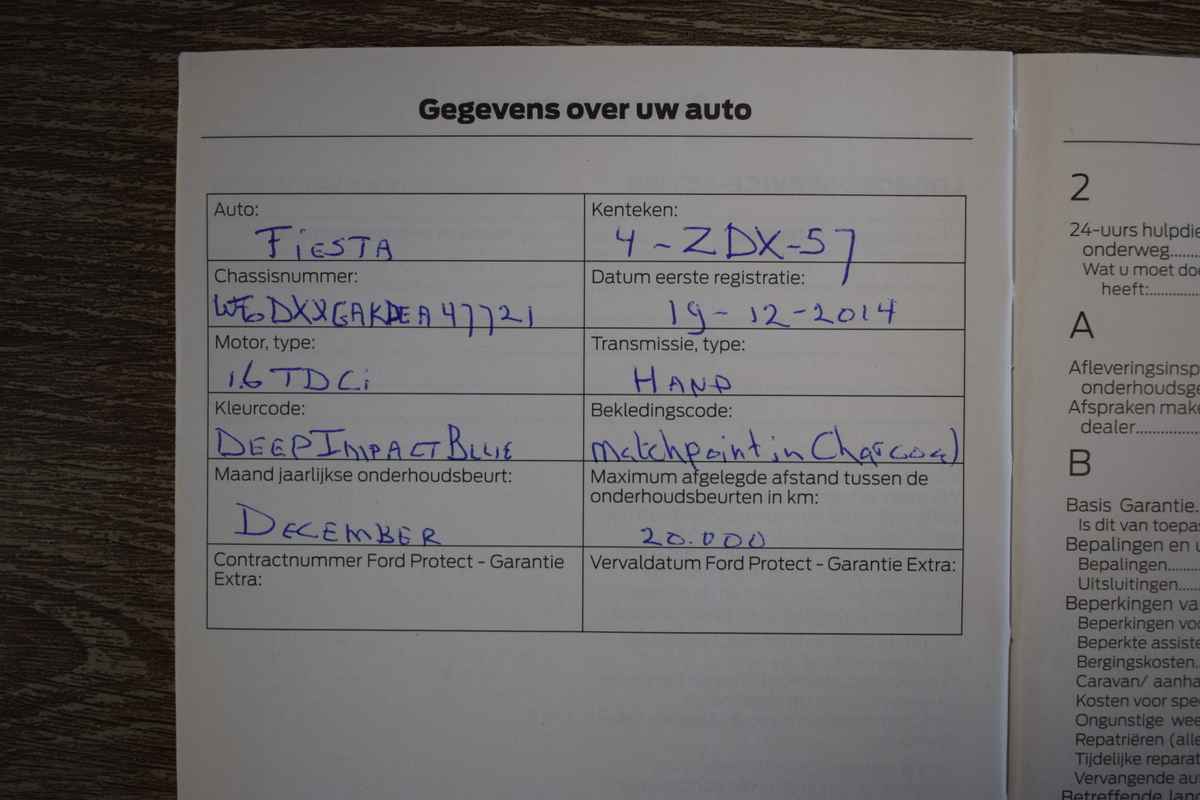 Gegevens over uw auto
Auto:
FiESTA
Kenteken:
4-ZDX-57
Chassisnummer:
WF0DXXGAKDEA47721
Datum eerste registratie:
19-12-2014
Motor, type:
1.6 TDCi
Transmissie, type:
HAND
Kleurcode:
DEEP IMPACT BLUE
Bekledingscode:
matchpoint in Charcoal
Maand jaarlijkse onderhoudsbeurt:
DECEMBER
Maximum afgelegde afstand tussen de
onderhoudsbeurten in km:
20.000
Contractnummer Ford Protect - Garantie
Extra:
Vervaldatum Ford Protect - Garantie Extra:
2
24-uurs hulpdie
onderweg........
Wat u moet doe
heeft:............
A
Afleveringsinsp
onderhoudsge
Afspraken make
dealer............
B
Basis Garantie.
Is dit van toepas
Bepalingen en u
Bepalingen.......
Uitsluitingen.....
Beperkingen va
Beperkingen voo
Beperkte assiste
Bergingskosten.
Caravan/ aanha
Kosten voor spe
Ongunstige wee
Repatriëren (alle
Tijdelijke reparat
Vervangende au
Betreffende land